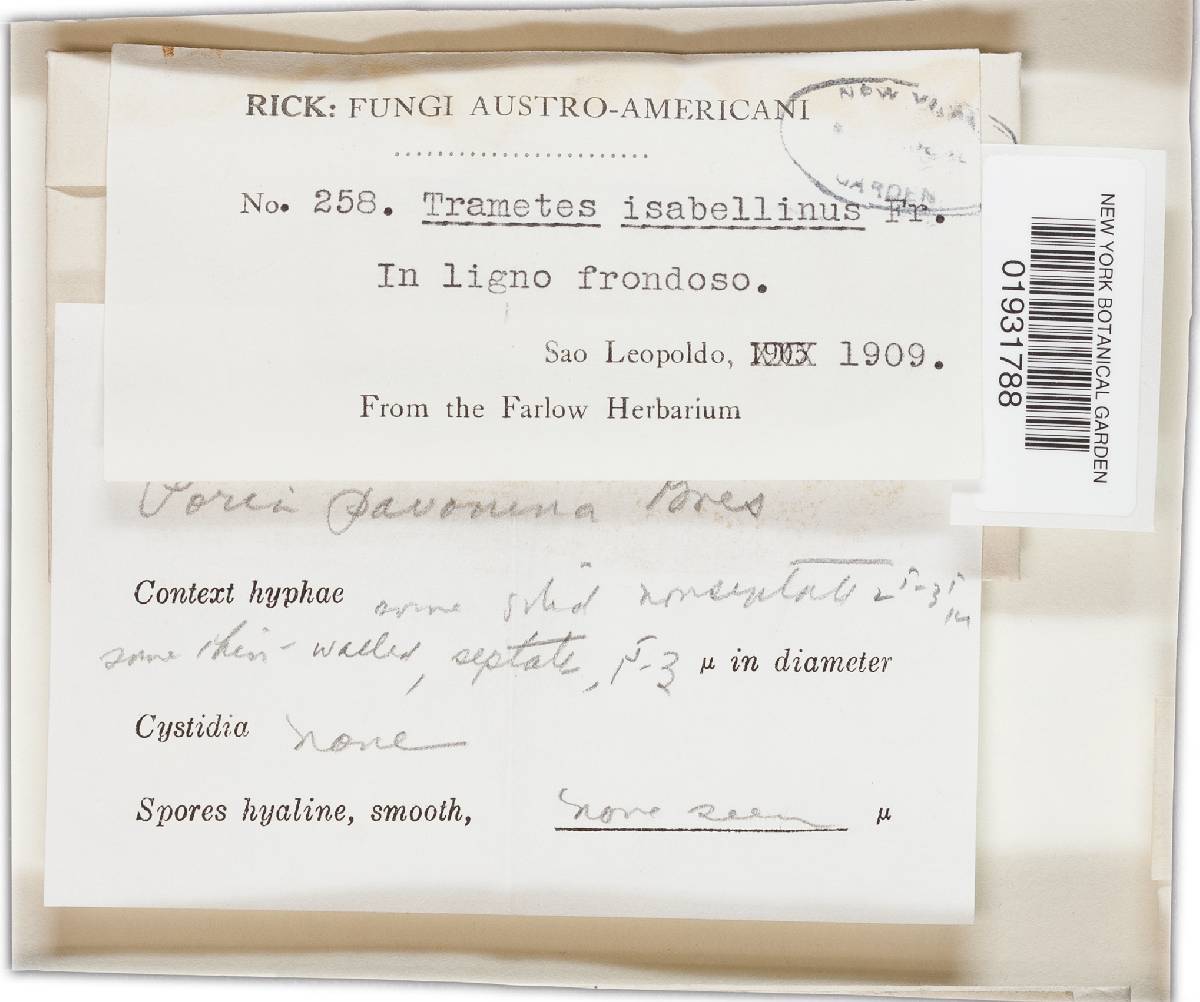 RICK: FUNGI AUSTRO-AMERICANI
No. 258. Trametes isabellinus Fr.
In ligno frondoso.
Sao Leopoldo, 1909.
From the Farlow Herbarium
NEW YORK BOTANICAL GARDEN
01931788
GARDEN
Poria pavonina Bres
Context hyphae some solid nonseptate
some thin-walled, septate, μ in diameter
Cystidia none
Spores hyaline, smooth, none seen μ